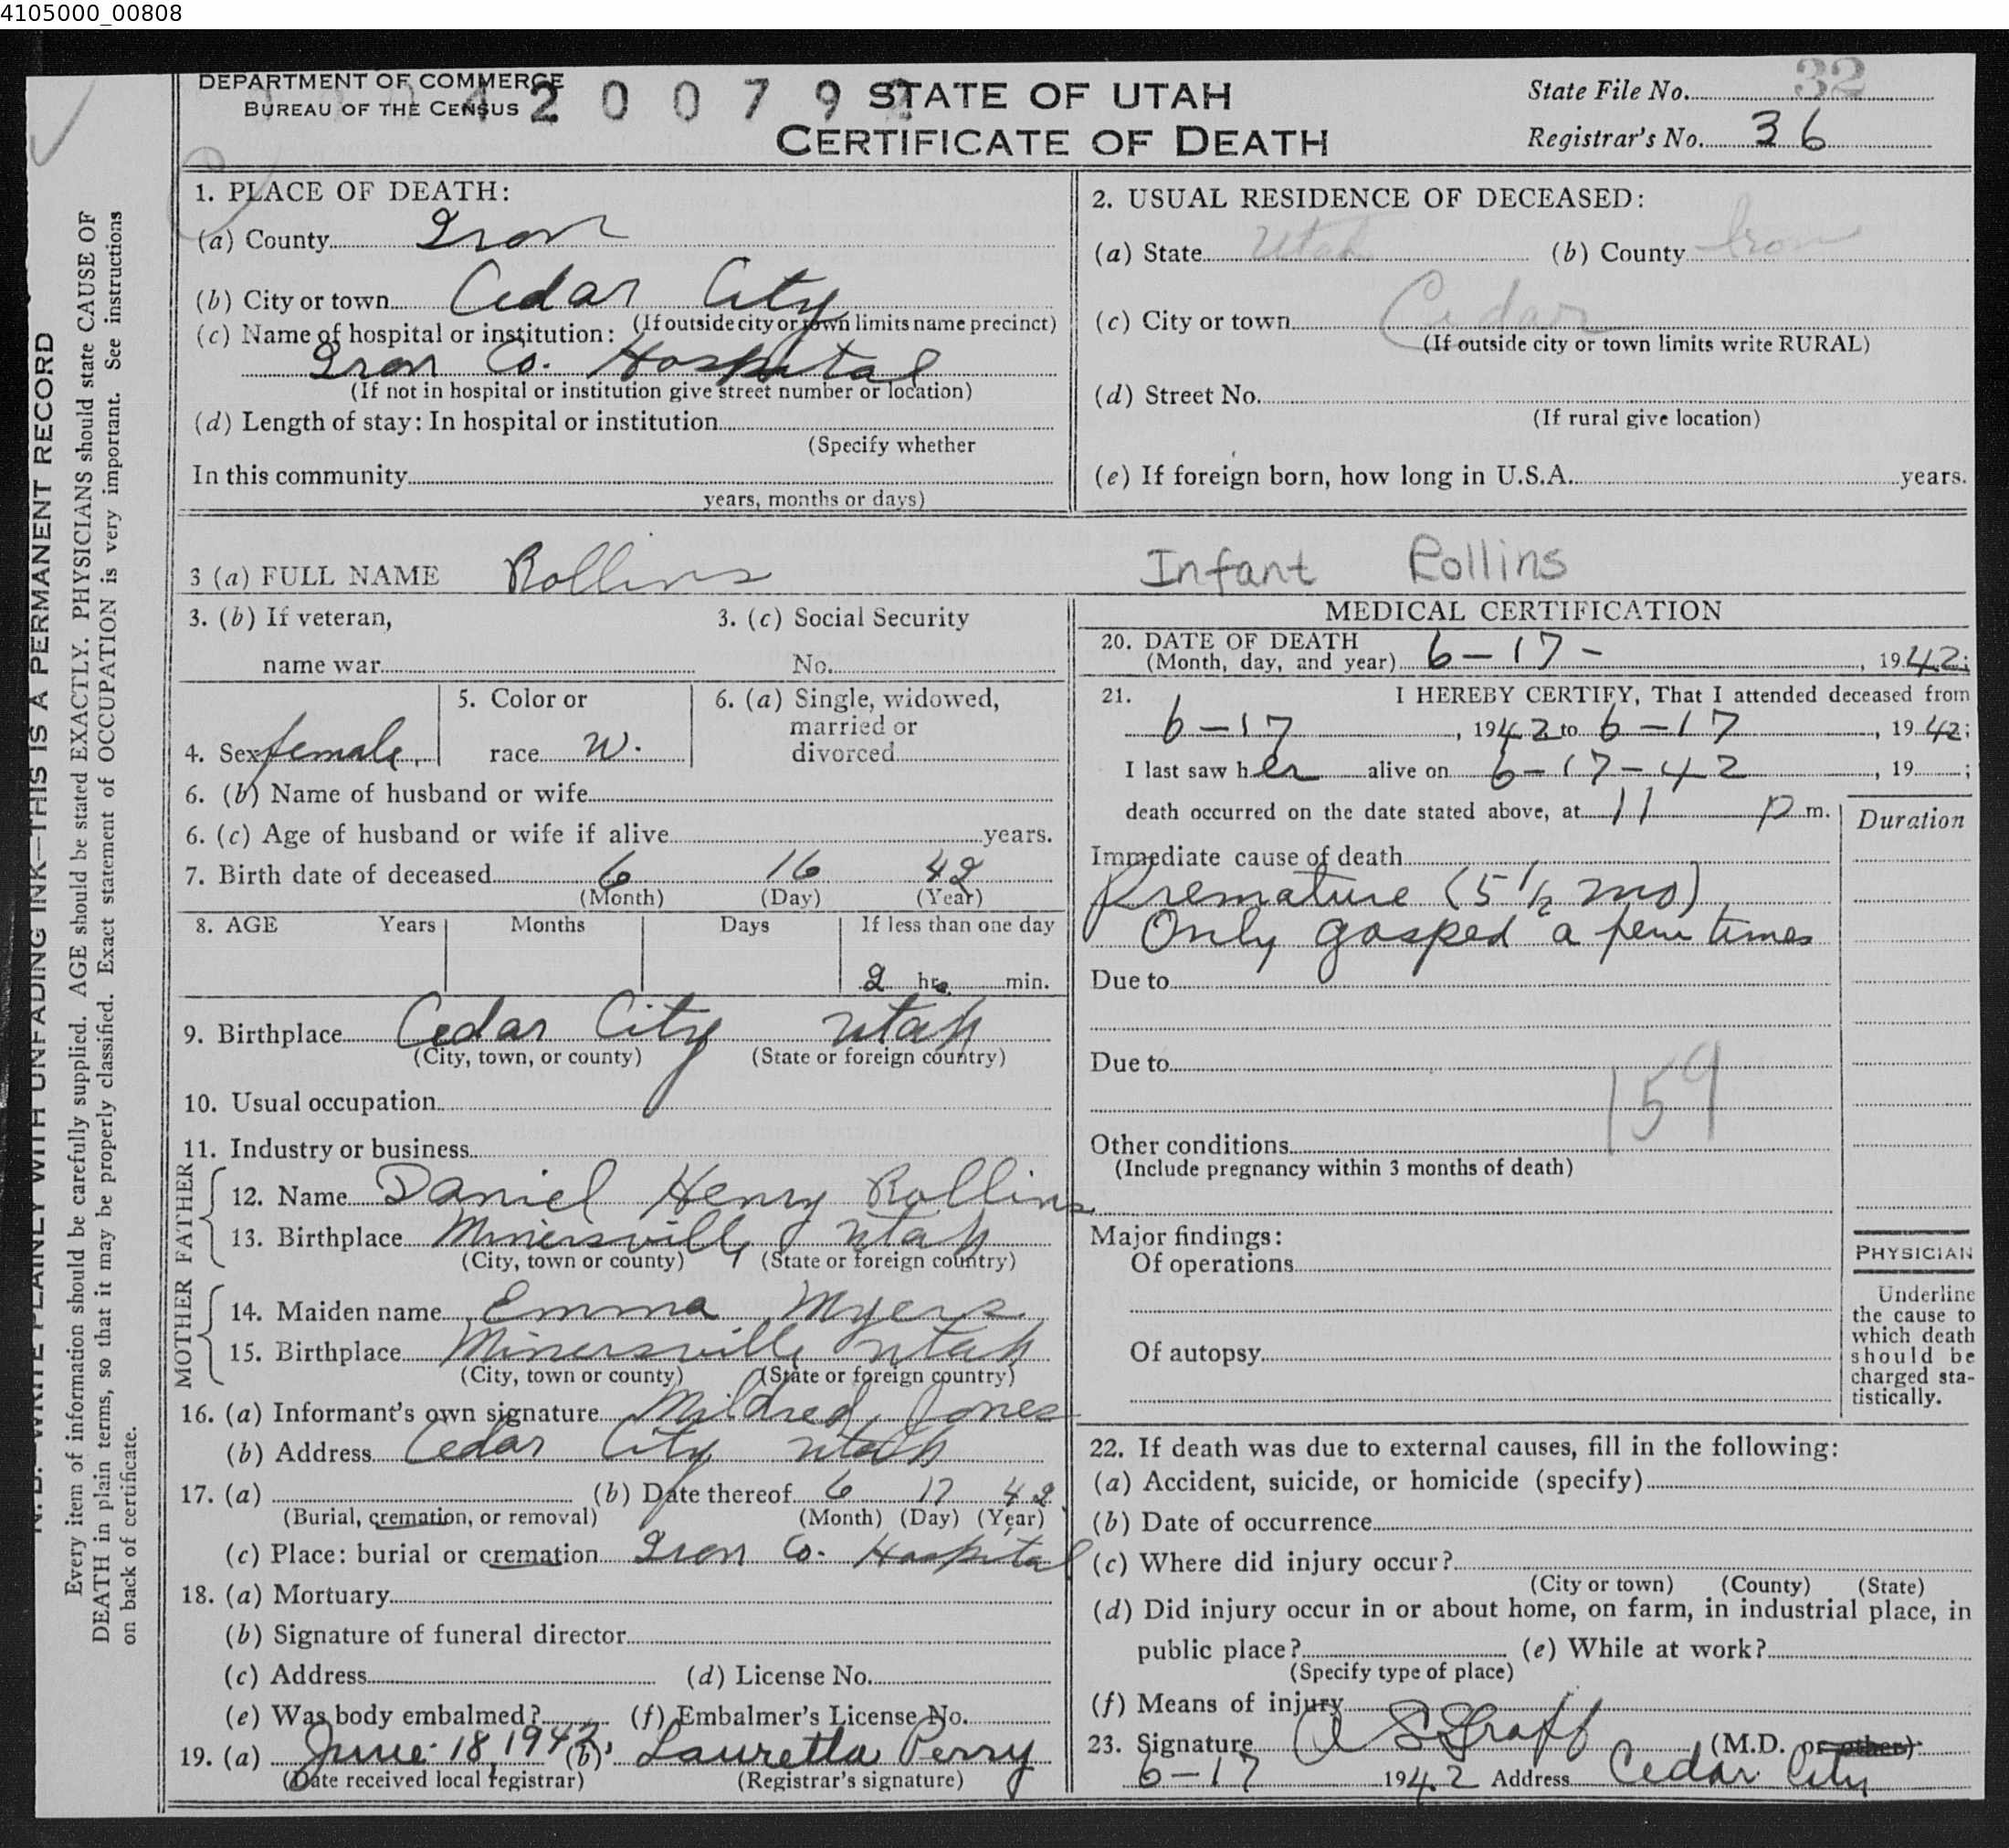 4105000_00808
DEPARTMENT OF COMMERCE
BUREAU OF THE CENSUS
4 2 0 0 7 9 2
STATE OF UTAH
CERTIFICATE OF DEATH
State File No. 32
Registrar's No. 36
N. B. WRITE PLAINLY WITH UNFADING INK—THIS IS A PERMANENT RECORD
Every item of information should be carefully supplied. AGE should be stated EXACTLY. PHYSICIANS should state CAUSE OF
DEATH in plain terms, so that it may be properly classified. Exact statement of OCCUPATION is very important. See instructions
on back of certificate.
1. PLACE OF DEATH:
(a) County Iron
(b) City or town Cedar City
(If outside city or town limits name precinct)
(c) Name of hospital or institution:
Iron Co. Hospital
(If not in hospital or institution give street number or location)
(d) Length of stay: In hospital or institution
(Specify whether
In this community
years, months or days)
2. USUAL RESIDENCE OF DECEASED:
(a) State Utah (b) County Iron
(c) City or town Cedar
(If outside city or town limits write RURAL)
(d) Street No.
(If rural give location)
(e) If foreign born, how long in U.S.A. years.
3 (a) FULL NAME Rollins Infant Rollins
3. (b) If veteran, 3. (c) Social Security
name war No.
4. Sex female. 5. Color or race W. 6. (a) Single, widowed, married or divorced
6. (b) Name of husband or wife
6. (c) Age of husband or wife if alive years.
7. Birth date of deceased 6 16 42
(Month) (Day) (Year)
8. AGE Years Months Days If less than one day
2 hrs. min.
9. Birthplace Cedar City Utah
(City, town, or county) (State or foreign country)
10. Usual occupation
11. Industry or business
FATHER
12. Name Daniel Henry Rollins
13. Birthplace Minersville Utah
(City, town or county) (State or foreign country)
MOTHER
14. Maiden name Emma Myers
15. Birthplace Minersville Utah
(City, town or county) (State or foreign country)
16. (a) Informant's own signature Mildred Jones
(b) Address Cedar City Utah
17. (a) (b) Date thereof 6 17 42
(Burial, cremation, or removal) (Month) (Day) (Year)
(c) Place: burial or cremation Iron Co. Hospital
18. (a) Mortuary
(b) Signature of funeral director
(c) Address (d) License No.
(e) Was body embalmed? (f) Embalmer's License No.
19. (a) June 18, 1942. (b) Lauretta Perry
(Date received local registrar) (Registrar's signature)
MEDICAL CERTIFICATION
20. DATE OF DEATH
(Month, day, and year) 6-17- , 1942;
21. I HEREBY CERTIFY, That I attended deceased from
6-17 , 1942 to 6-17 , 1942;
I last saw her alive on 6-17-42 , 19 ;
death occurred on the date stated above, at 11 P m.
Duration
Immediate cause of death
Premature (5 1/2 mo)
Only gasped a few times
Due to
Due to
159
Other conditions
(Include pregnancy within 3 months of death)
Major findings:
Of operations
Of autopsy
PHYSICIAN
Underline
the cause to
which death
should be
charged sta-
tistically.
22. If death was due to external causes, fill in the following:
(a) Accident, suicide, or homicide (specify)
(b) Date of occurrence
(c) Where did injury occur?
(City or town) (County) (State)
(d) Did injury occur in or about home, on farm, in industrial place, in
public place? (e) While at work?
(Specify type of place)
(f) Means of injury
23. Signature A S Graff (M.D. or other)
6-17 1942 Address Cedar City